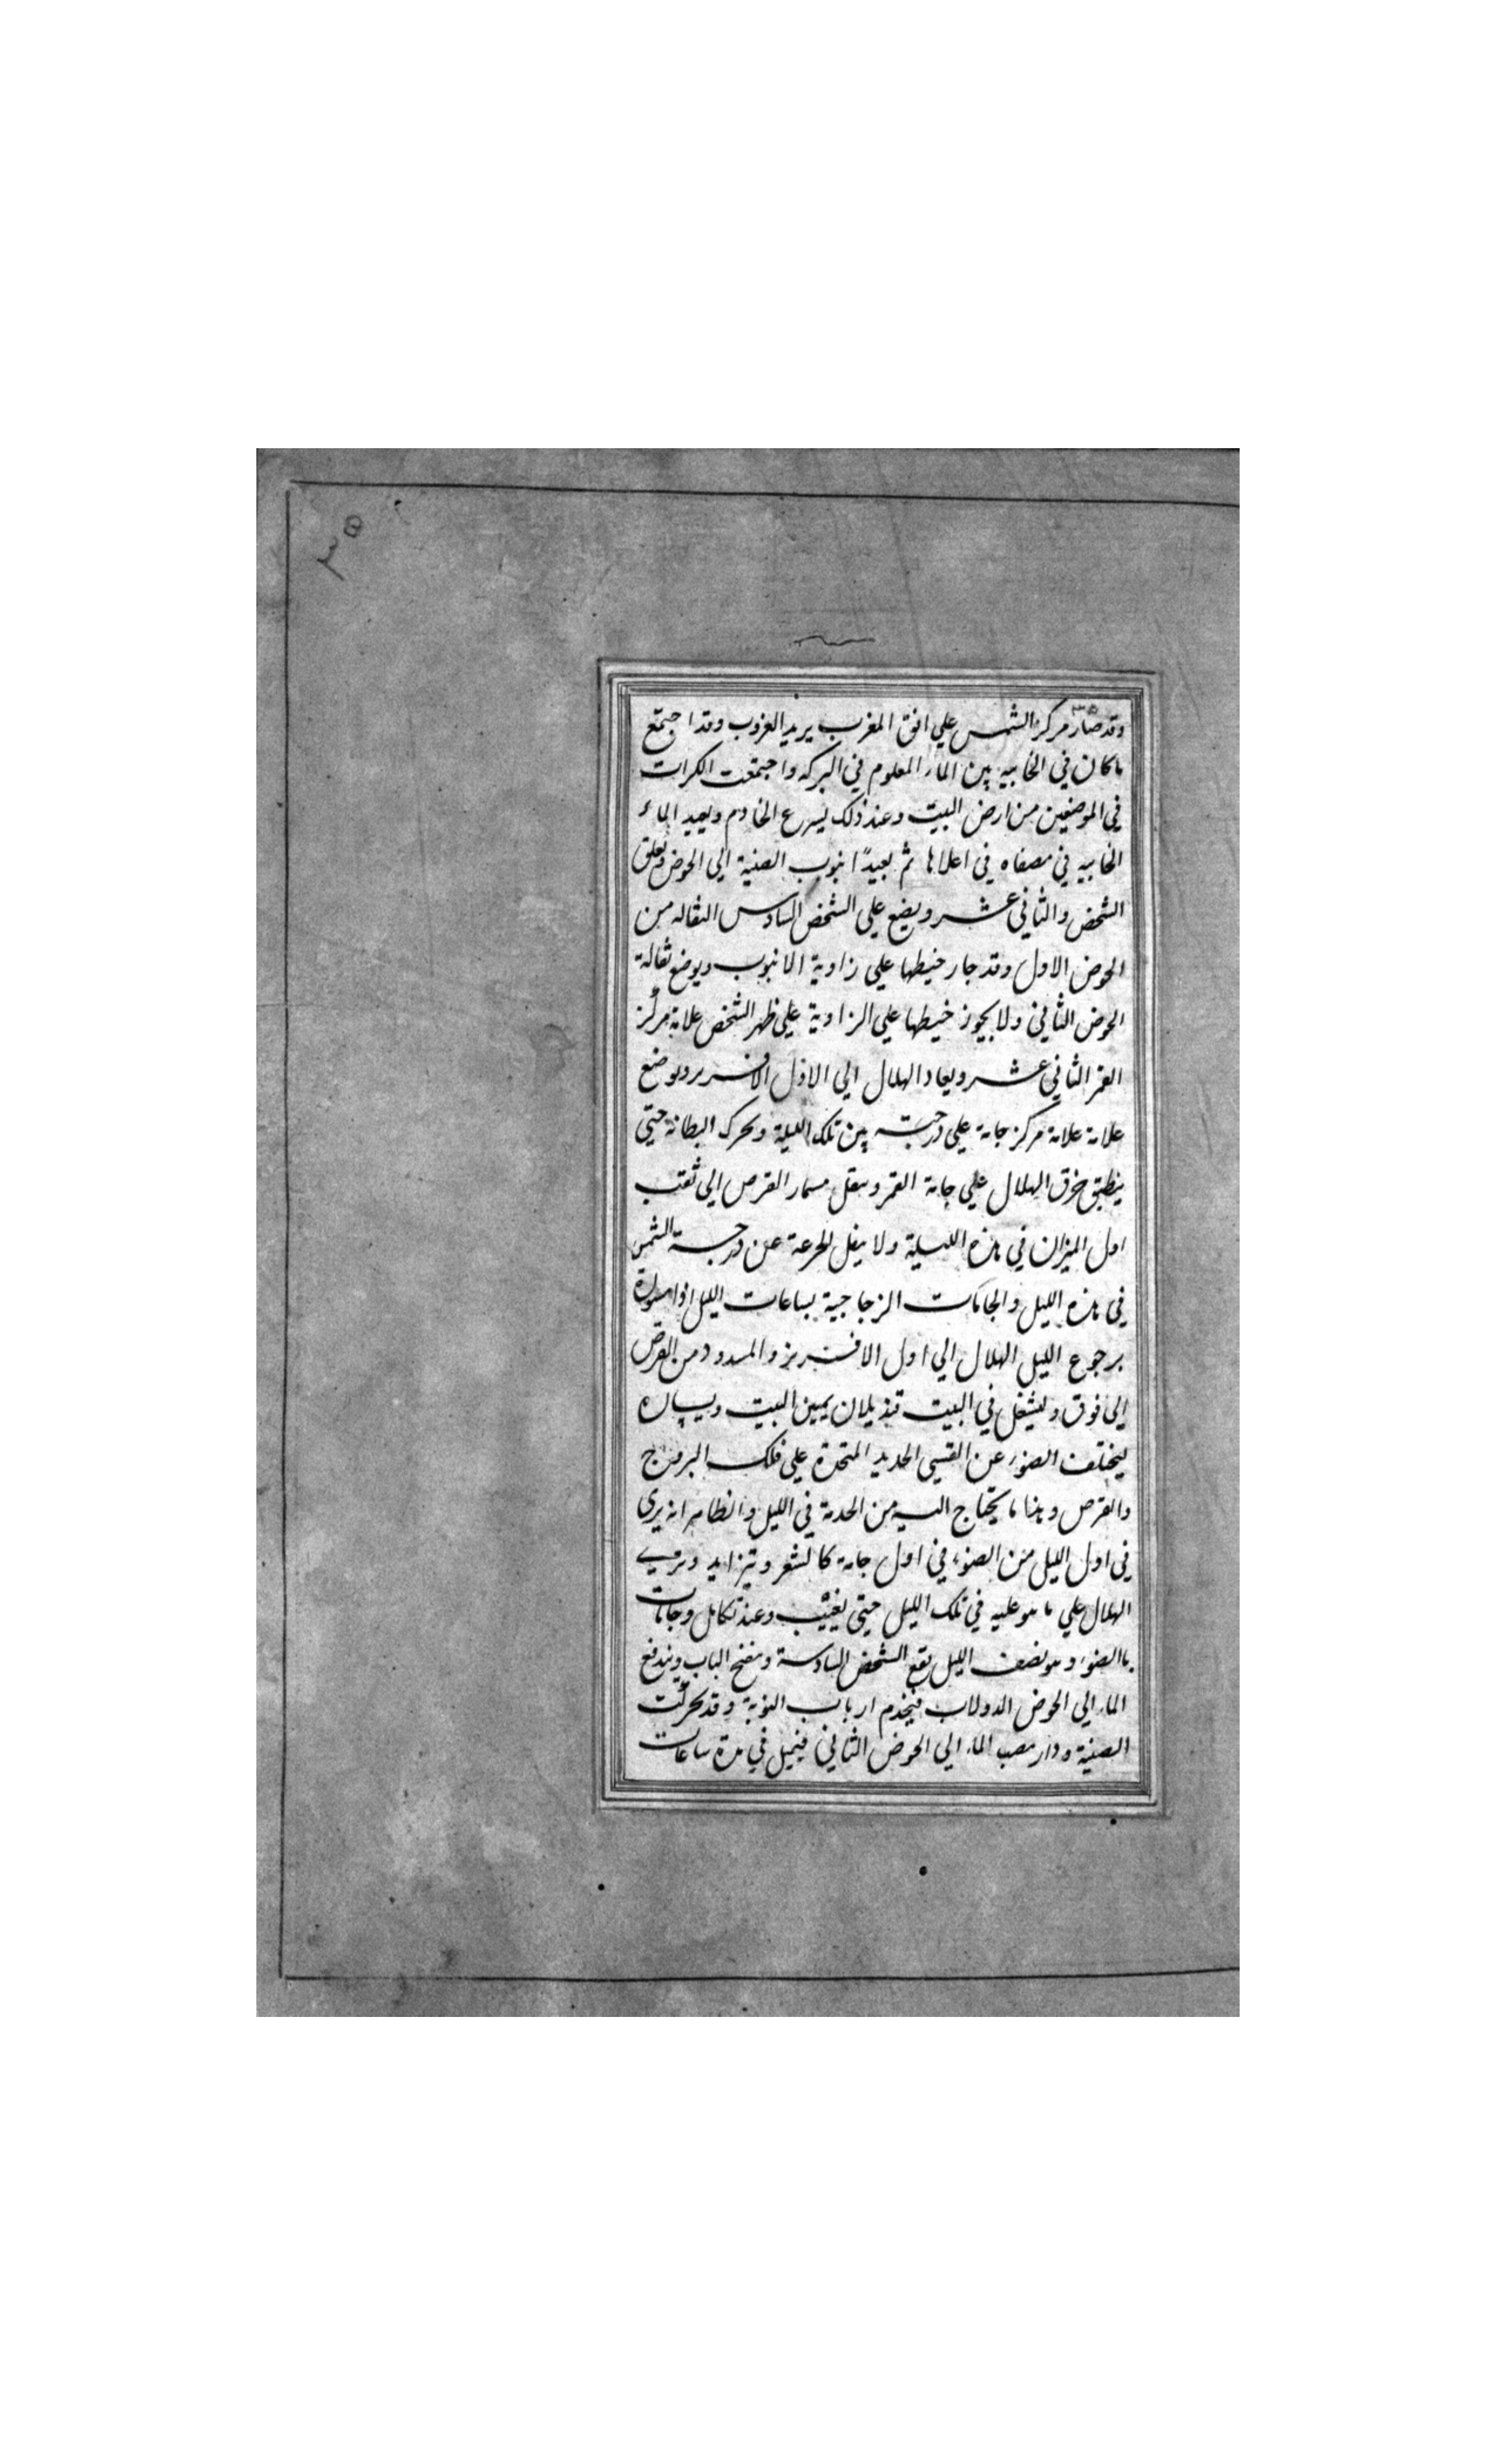 ٣٥
٣٥
وقد صار مركز الشمس علي افق المغرب يريد الغروب وقد اجتمع
ما كان في الخابيه بين الماء المعلوم في البركه واجتمعت الكرات
في الموضعين من ارض البيت وعند ذلك يسرع الخادم ويعيد الماء
الخابيه في مصفاه في اعلاها ثم يعيد انبوب الصنية الي الحوض ويعلق
الشخص والثاني عشر ويضع علي الشخص السادس الثقاله من
الحوض الاول وقد جار خيطها علي زاوية الانبوب ويوضع ثقالة
الحوض الثاني ولا يجوز خيطها علي الزاوية علي ظهر الشخص علامة مركز
القمر الثاني عشر ويعاد الهلال الي الاول الافريز ويوضع
علامة علامة مركز جامة علي درجته بين تلك الليلة ويحرك البطانة حتي
ينطبق خرق الهلال علي جامة القمر وينقل مسمار القرص الي ثقب
اول الميزان في هذه الليلة ولا ينقل الجزعة عن درجة الشمس
في هذه الليل والجامات الزجاجية بساعات الليل
برجوع الليل الهلال الي اول الافريز والمسدود من القرص
الي فوق ويشغل في البيت قنديلان يمين البيت ويساره
ليختلف الضوء عن القسي الحديد المتحدة علي فلك البروج
والقرص وهنا ما يحتاج اليه من الخدمة في الليل والظاهر انه يري
في اول الليل من الضوء في اول جامة كالشعر وتيزايد ويري
الهلال علي ما هو عليه في تلك الليل حتي يغيب وعند تكامل وجامات
باالضوء وهو نصف الليل يقع الشخص السادسة وينفتح الباب ويندفع
الماء الي الحوض الدولاب فيخدم ارباب النوبة وقد تحركت
الصنية ودار مصب الماء الي الحوض الثاني فيميل في مدة ساعات